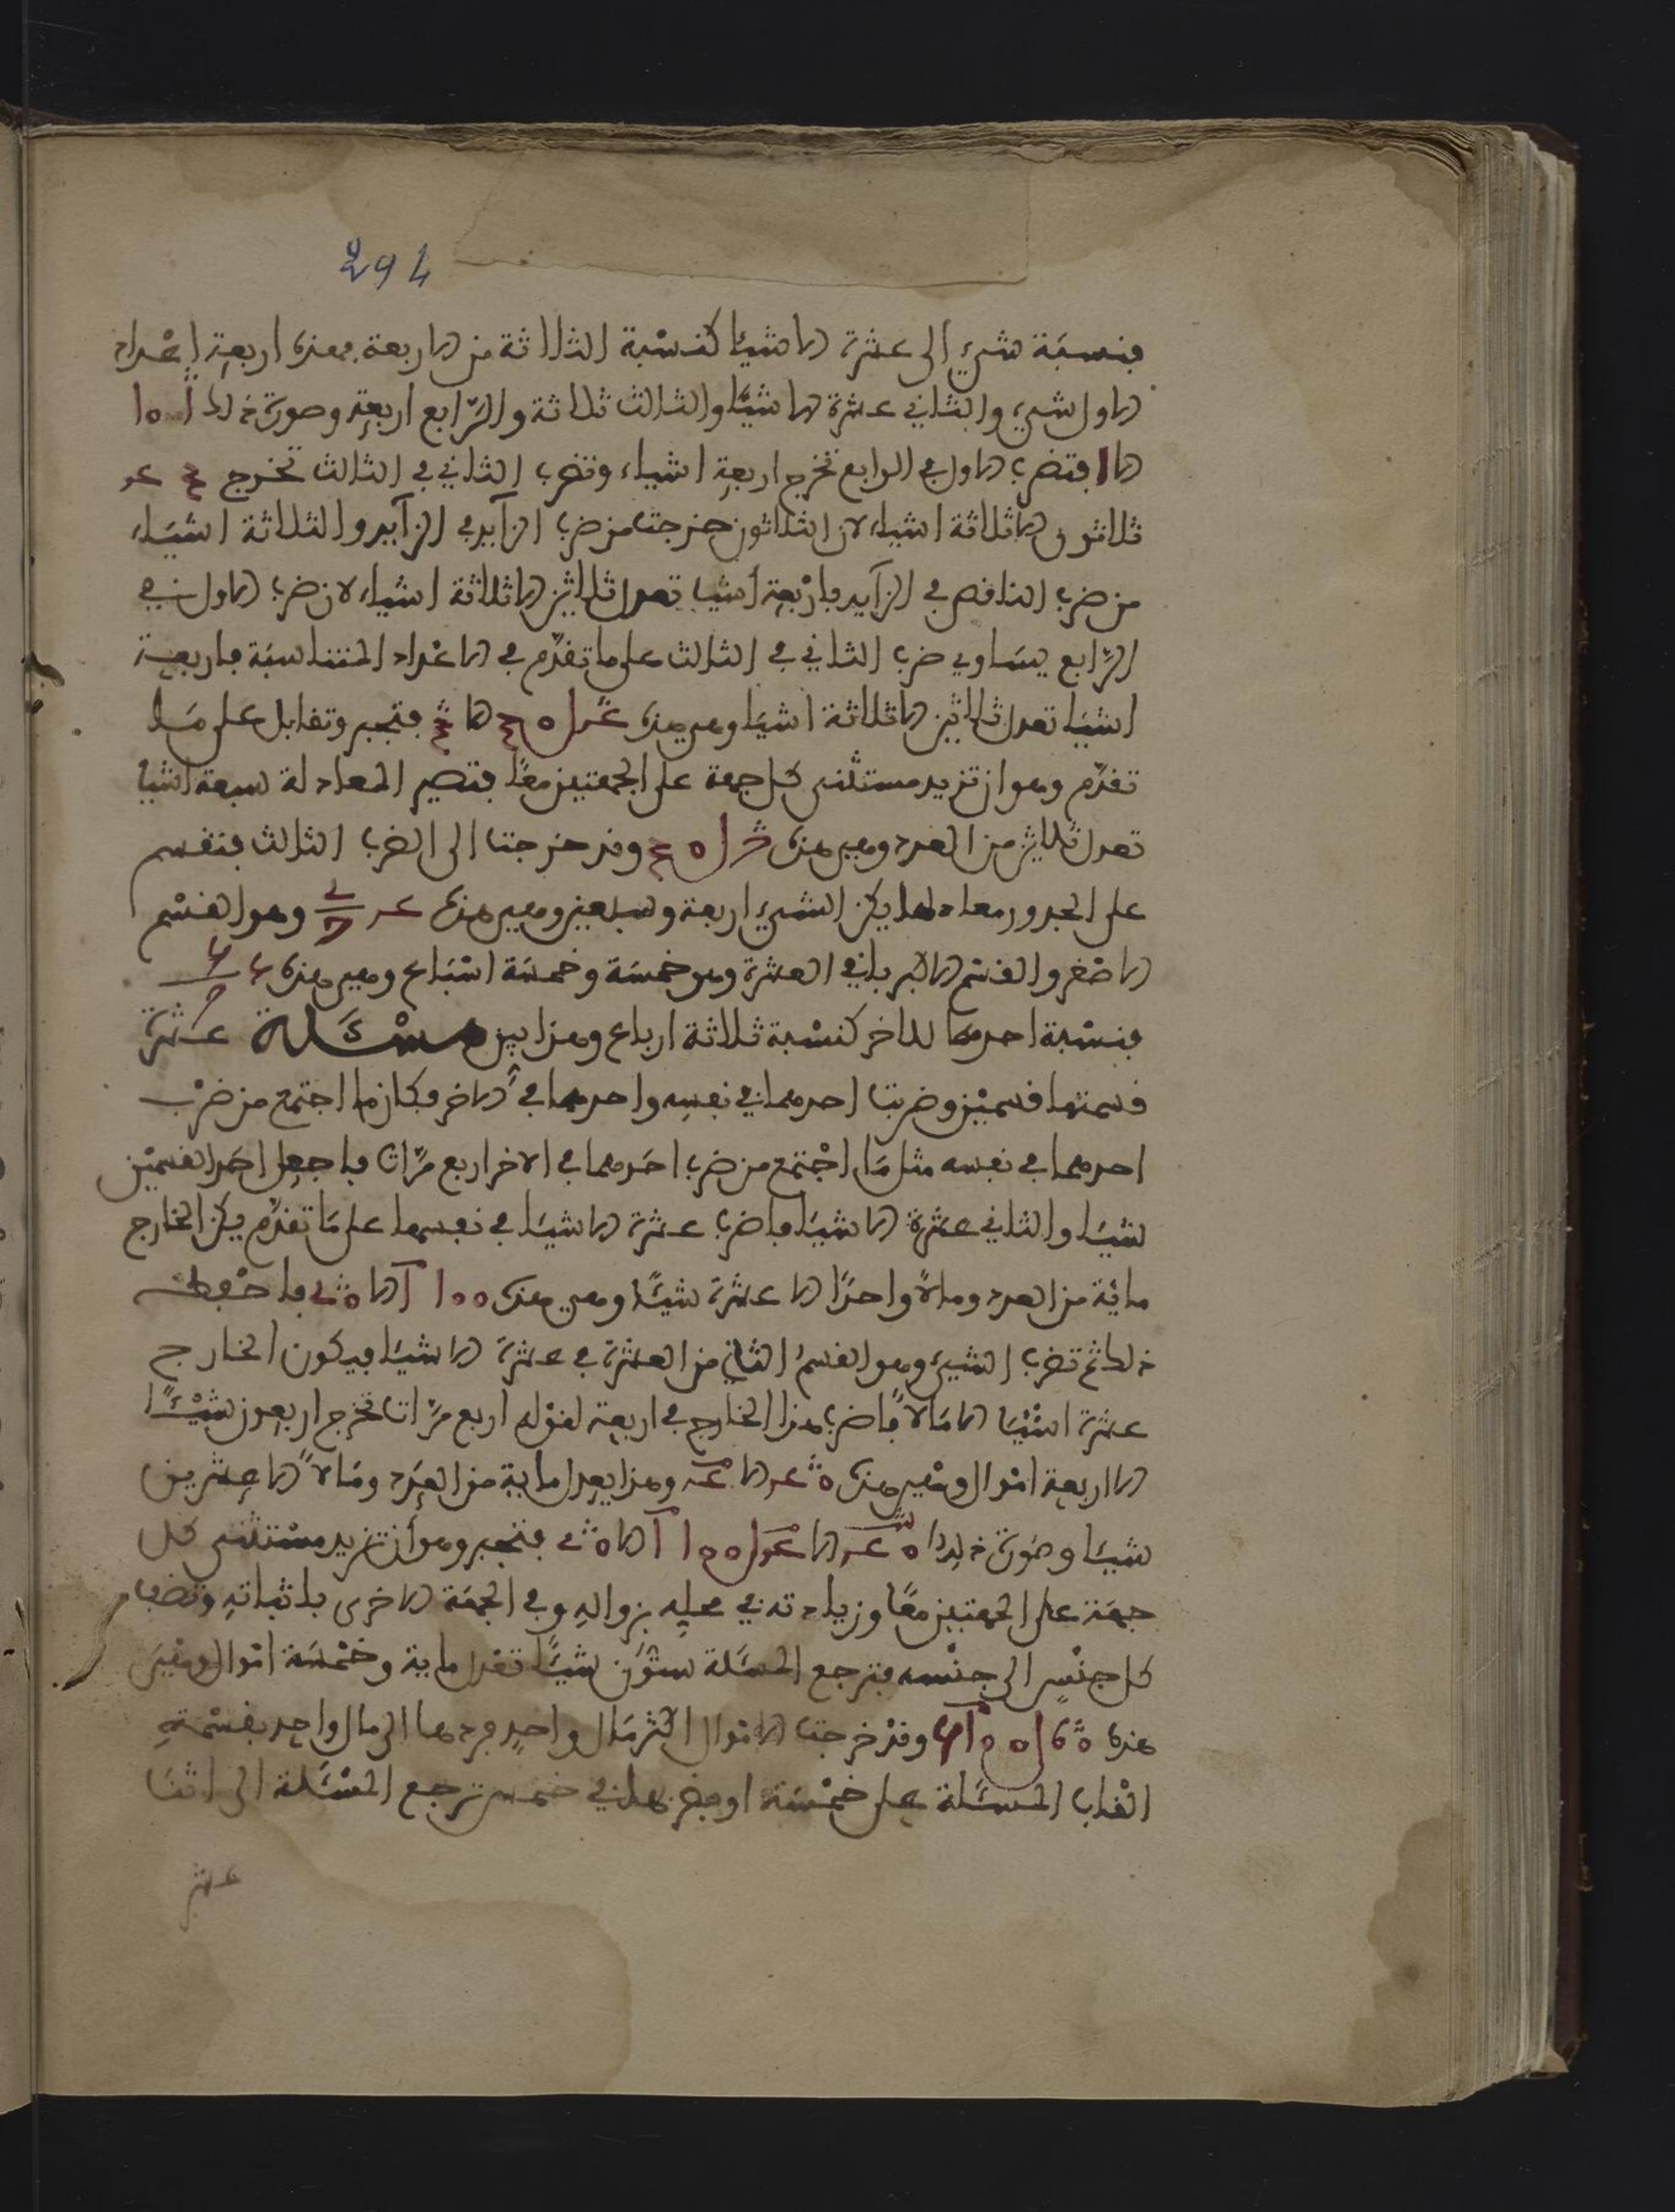 294
فنسبة شيء الى عشرة الا شيئا كنسبة الثلاثة من الاربعة فهذه اربعة اعداد
الاول شيء والثاني عشرة الا شيئا والثالث ثلاثة والرابع اربعة وصورة ذلك
فتضرب الاول في الرابع تخرج اربعة اشياء وتضرب الثاني في الثالث تخرج
ثلاثون الا ثلاثة اشياء لان الثلاثون خرجت من ضرب الزايد في الزايد والثلاثة اشياء
من ضرب الناقص في الزايد فاربعة اشيا تعدل ثلاثين الا ثلاثة اشياء لان ضرب الاول في
الرابع يساوي ضرب الثاني في الثالث على ما تقدم في الاعداد المتناسبة فاربعة
اشيا تعدل ثلاثين الا ثلاثة اشيا وهي هذه فتجبر وتقابل على ما
تقدم وهو ان تزيد مستثنى كل جهة على الجهتين معا فتصير المعادلة سبعة اشيا
تعدل ثلاثين من العدد وهي هذه وقد خرجت الى الضرب الثالث فتقسم
على الجدور معادلها يكن الشيء اربعة وسبعين وهي هذه وهو القسم
الاصغر والقسم الاكبر باقي العشرة وهو خمسة وخمسة اسباع وهي هذه
فنسبة احدهما للاخر كنسبة ثلاثة ارباع وهذا بين مسئلة عشرة
قسمتها قسمين وضربت احدهما في نفسه واحدهما في الاخر فكان ما اجتمع من ضرب
احدهما في نفسه مثل ما اجتمع من ضرب احدهما في الاخر اربع مرات فاجعل احد القسمين
شيئا والثاني عشرة الا شيئا فاضرب عشرة الا شيئا في نفسها على ما تقدم يكن الخارج
مائة من العدد ومالا واحدا الا عشرة شيئا وهي هذه فاحفظ
ذلك ثم تضرب الشيء وهو القسم الثاني من العشرة في عشرة الا شيئا فيكون الخارج
عشرة اشيا الا مالا فاضرب هذا الخارج في اربعة لقوله اربع مرات تخرج اربعون شيئا
الا اربعة اموال وهي هذه وهذا يعدل ماية من العدد ومالا الا عشرين
شيئا وصورة ذلك فتجبر وهو ان تزيد مستثنى كل
جهة على الجهتين معا وزيادته في محله بزواله وفي الجهة الاخرى باثباته وتضب
كل جنس الى جنسه فترجع المسئلة ستون شيئا تعدل ماية وخمسة اموال وهي
هذه وقد خرجت الاموال اكثر مال واحد فردها الى مال واحد بقسمة
القاب المسئلة على خمسة او بضربها في خمس ترجع المسئلة الى اثنا
عشر